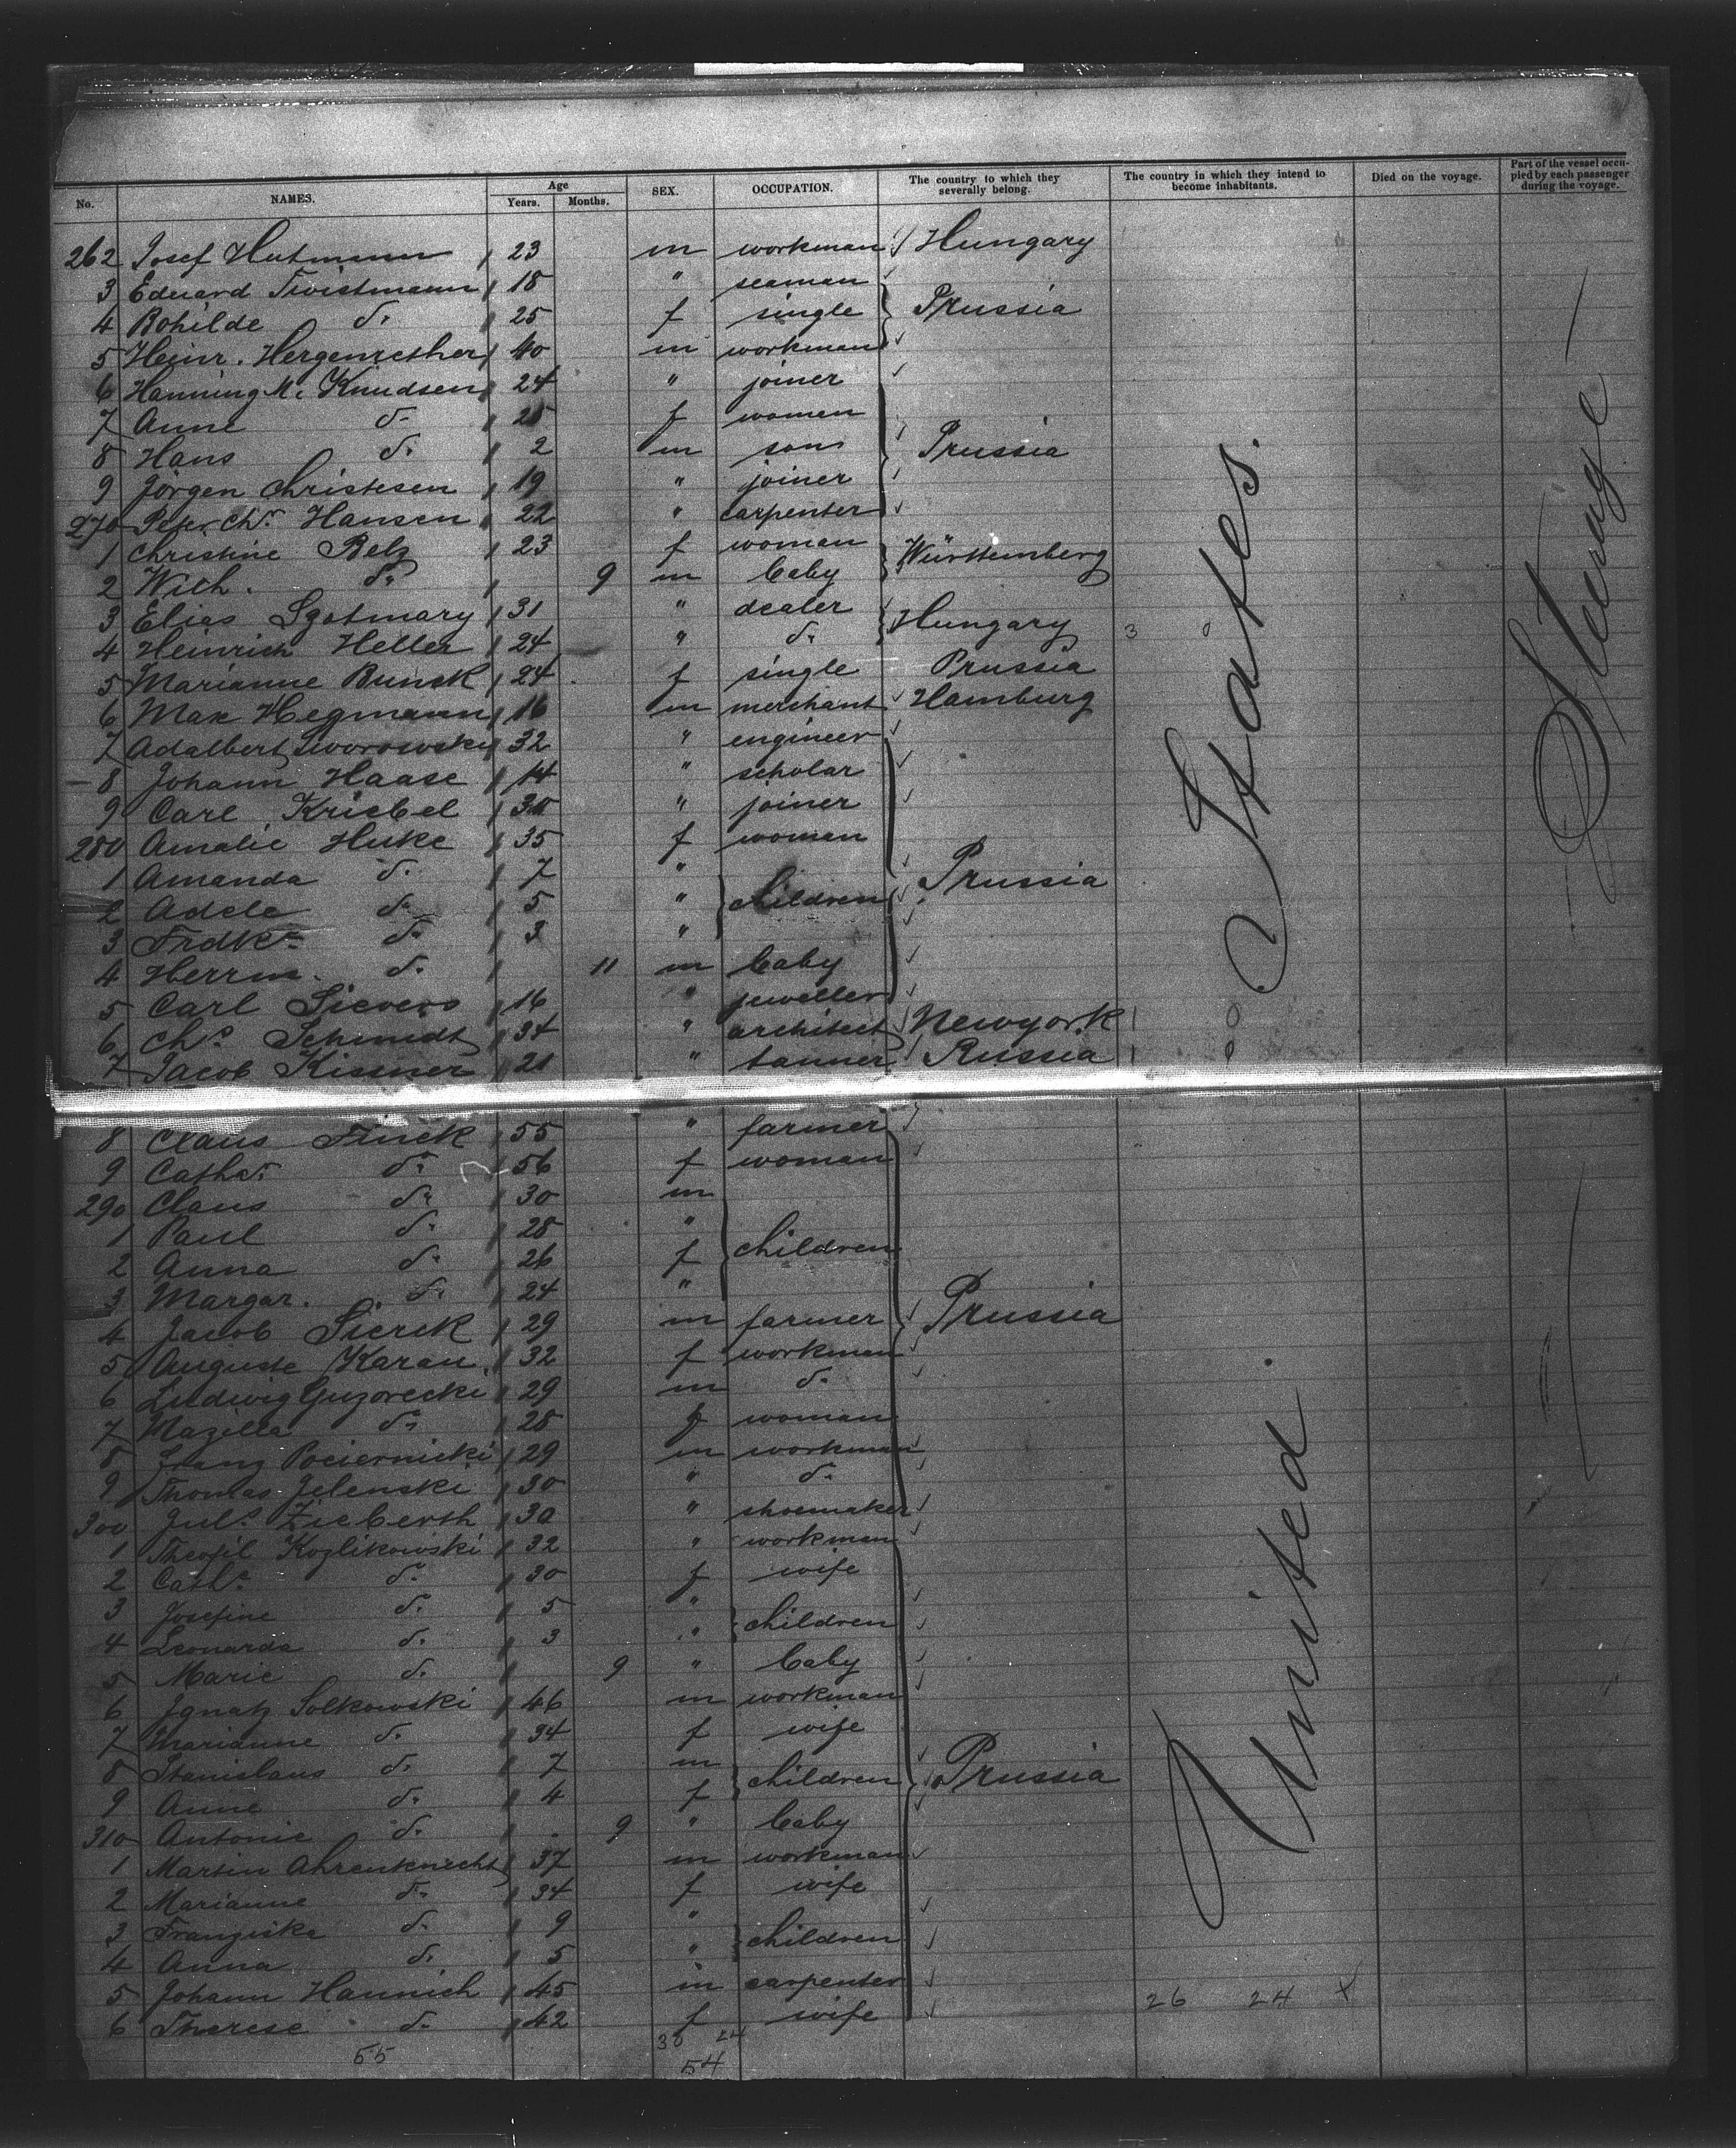 No. NAMES. Age Years. Months. SEX. OCCUPATION. The country to which they severally belong. The country in which they intend to become inhabitants. Died on the voyage. Part of the vessel occupied by each passenger during the voyage.
262 Josef Hutmann 23 m workman Hungary
3 Eduard Twistmann 18 " seaman
4 Bohilde do. 25 f single Prussia
5 Heinr. Hergenrether 40 m workman
6 Hanning M. Knudsen 24 " joiner
7 Anne do. 25 f women
8 Hans do. 2 m son Prussia
9 Jörgen Christesen 19 " joiner
270 Peter Chr. Hansen 22 " carpenter
1 Christine Belz 23 f woman Württemberg
2 Wilh. do. 9 m baby
3 Elias Szotmary 31 " dealer Hungary
4 Heinrich Heller 24 " do. 3 0
5 Marianne Bunsk 24 f single Prussia
6 Max Hegmann 16 m merchant Hamburg
7 Adalbert Sworowsky 32 " engineer
8 Johann Haase 14 " scholar
9 Carl Kriebel 30 " joiner
280 Amalie Huke 35 f woman
1 Amanda do. 7 " Prussia
2 Adele do. 5 " children
3 Frdke. do. 3 "
4 Herrm. do. 11 m baby
5 Carl Sievers 16 " jeweller
6 Chs. Schmidt 34 " architect Newyork 1 0
7 Jacob Kissner 21 " tanner Russia 1 0
8 Claus Finck 55 " farmer
9 Cathr. do. 56 f woman
290 Claus do. 30 m
1 Paul do. 28 "
2 Anna do. 26 f children
3 Margar. do. 24 "
4 Jacob Sierck 29 m farmer Prussia
5 Auguste Karau 32 f workman
6 Ludwig Guzorecki 29 m do.
7 Mazella do. 28 f woman
8 Franz Pociernicki 29 m workman
9 Thomas Jelenski 30 " do.
300 Juls. Zieberth 30 " shoemaker
1 Theofil Kozlikowski 32 " workman
2 Cath. do. 30 f wife
3 Josefine do. 5 "
4 Leonarda do. 3 " children
5 Marie do. 9 " baby
6 Ignatz Solkowski 46 m workman
7 Marianne do. 34 f wife
8 Stanislaus do. 7 m children Prussia
9 Anne do. 4 f
310 Antonie do. 9 " baby
1 Martin Ahrenknecht 37 m workman
2 Marianne do. 34 f wife
3 Franziska do. 9 "
4 Anna do. 5 " children
5 Johann Hannich 45 m carpenter 26 24
6 Therese do. 42 f wife
30 24
55 54
United States.
Steerage